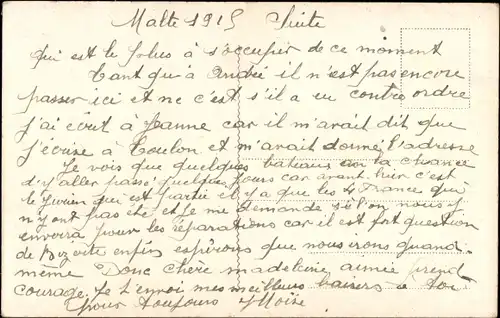 Malte 1915 Suite
qui est le plus à s'occuper de ce moment
tant qu'à André il n'est pas encore
passer ici et ne c'est s'il a eu contre ordre
j'ai écrit à Jeanne car il m'avait dit que
j'écrise à Toulon et m'avait donné l'adresse
Je vois que quelques bateaux on la chance
d'y aller passé quelques jours car avant hier c'est
le qui est partie il y a que les 4 France qui
n'y ont pas été et je me demande si l'on nous y
enverra pour les réparations car il est fort question
de Bizerte enfin espérons que nous irons quand
même Donc chère madeleine aimée prend
courage. Je t'envoi mes meilleurs baisers a toi
pour toujours Moïse